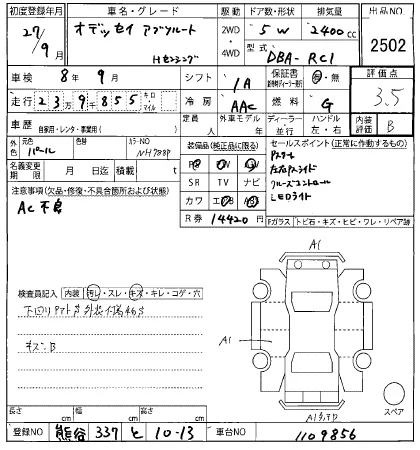 初度登録年月 車名・グレード 駆動 ドア数・形状 排気量 出品NO
27/9月 オデッセイ アブソルート Hセンシング 2WD・4WD 5W 2400cc 2502
型式 DBA-RC1
車検 8年9月 シフト IA 保証書 有・無 評価点
走行 23万9千855 キロ マイル 冷房 AAC 燃料 G 3.5
車歴 自家用・レンタ・事業用( ) 定員 人 外車モデル 年 ディーラー・並行 ハンドル 左・右 内装評価 B
外色 元色 パール 色替 カラーNO NH788P 装備品(純正品に限る) セールスポイント(正常に作動するもの)
名義変更期限 月 日迄 積載 t PS PW
Pスタート
左右Pスライド
クルーズコントロール
LEDライト
注意事項(欠品・修復・不具合箇所および状態) SR TV ナビ
AC不良 カワ エアB
R券 14420円 Fガラス トビ石・キズ・ヒビ・ワレ・リペア跡
A1
検査員記入 内装 汚レ・スレ・キズ・キレ・コゲ・穴
A1
キズB
スペア
長さ cm 幅 cm 高さ cm
登録NO 熊谷 337 と 10-13 車台NO 1109856